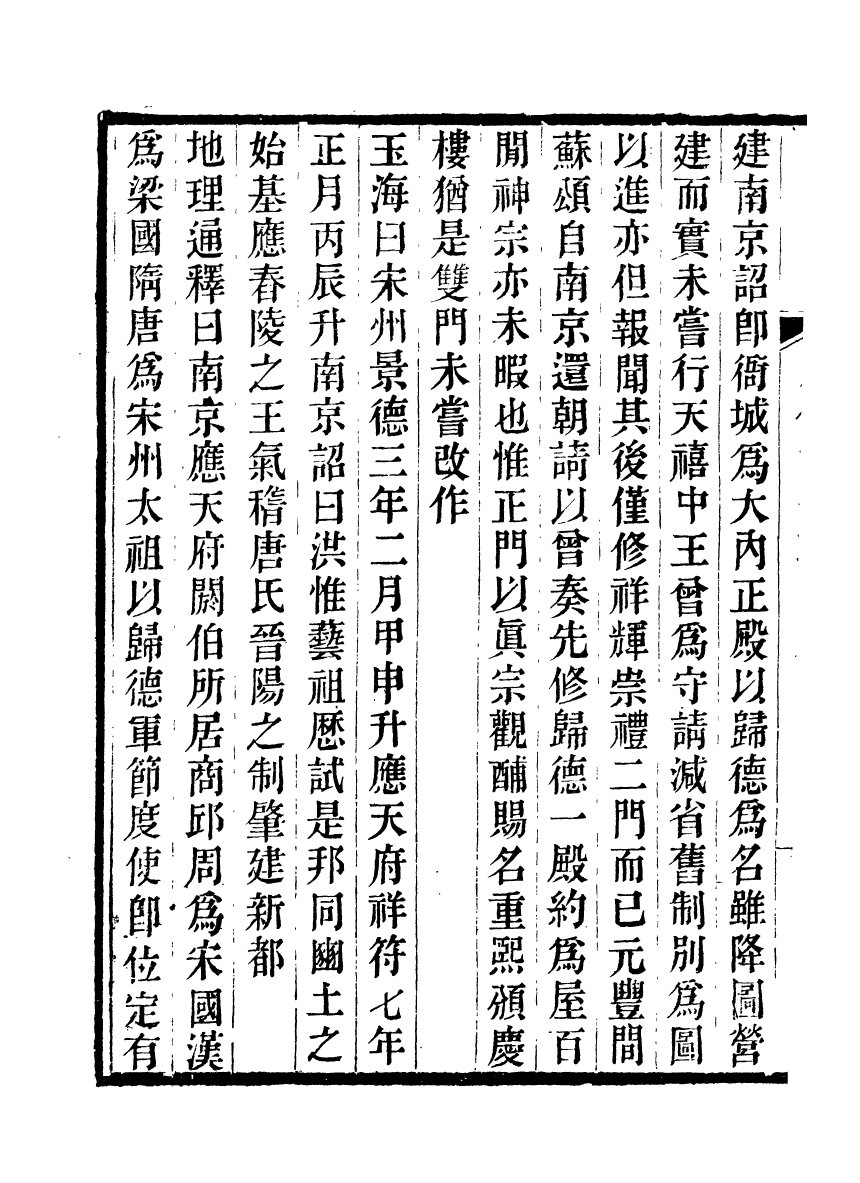 建南京詔卽衙城爲大內正殿以歸德爲名雖降圖營
建而實未嘗行天禧中王曾爲守請減省舊制別爲圖
以進亦但報聞其後僅修祥輝崇禮二門而已元豐間
蘇頌自南京還朝請以曾奏先修歸德一殿約爲屋百
閒神宗亦未暇也惟正門以眞宗觀酺賜名重熙頒慶
樓猶是雙門未嘗改作
玉海曰宋州景德三年二月甲申升應天府祥符七年
正月丙辰升南京詔曰洪惟藝祖歷試是邦同豳土之
始基應舂陵之王氣稽唐氏晉陽之制肇建新都
地理通釋曰南京應天府閼伯所居商邱周爲宋國漢
爲梁國隋唐爲宋州太祖以歸德軍節度使卽位定有